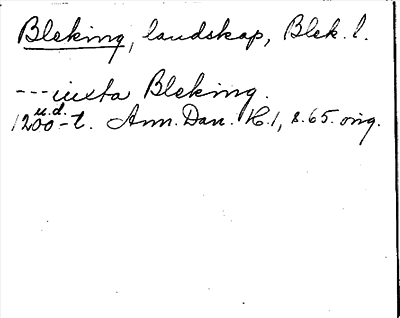 Bleking, landskap, Blek. l.
--- iuxta Bleking.
u.d.
1200-t. Ann. Dan. H. 1, s. 65. orig.